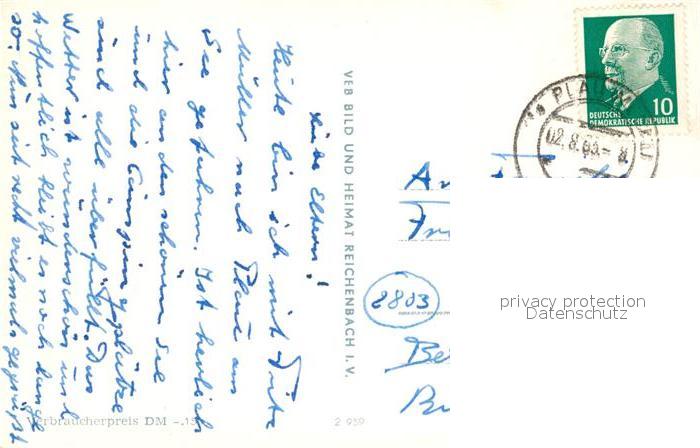 Liebe Eltern!
Heute bin ich mit Fritz
Müller nach Plau am
See gefahren. Ist herrlich
hier an den schönen See
und die Campingplätze
sind alle überfüllt. Das
Wetter ist wunderschön und
hoffentlich bleibt es noch lange
so. Nun seit recht vielmals gegrüßt
VEB BILD UND HEIMAT REICHENBACH I. V.
Verbraucherpreis DM -.15
2 959
DEUTSCHE
DEMOKRATISCHE REPUBLIK
10
PLAU
8
An
(2803)
privacy protection
Datenschutz